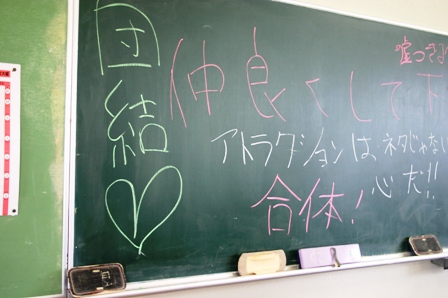 団結
仲良くして下
嘘つき
アトラクションは、ネタじゃない
心だ!!
合体!